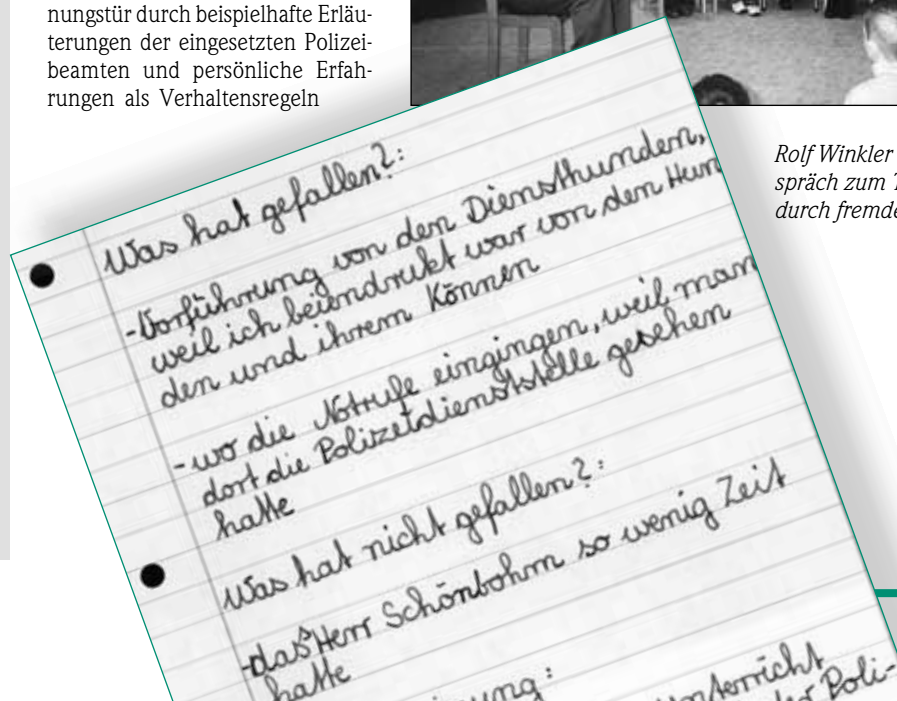 nungstür durch beispielhafte Erläu-
terungen der eingesetzten Polizei-
beamten und persönliche Erfah-
rungen als Verhaltensregeln
Rolf Winkler
spräch zum
durch fremde
Was hat gefallen?:
-Vorführung von den Diensthunden,
weil ich beiendrukt war von den Hun
den und ihrem Können
-wo die Notrufe eingingen, weil man
dort die Polizetdienststelle gesehen
hatte
Was hat nicht gefallen?:
-das Herr Schönbohm so wenig Zeit
hatte
Unterricht
Poli-